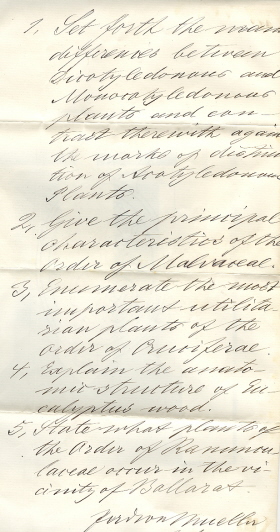 1, Set forth the main
differences between
Dicotyledonous and
Monocotyledonous
plants and con-
trast therewith again
the marks of distinc
tion of Acotyledonous
Plants.
2, Give the principal
characteristics of the
Order of Malvaceae.
3, Enumerate the most
important utilita-
rian plants of the
order of Cruciferae
4, Explain the anato-
mic structure of Eu
calyptus wood.
5, State what plants of
the Order of Ranuncu
laceae occur in the vi
cinity of Ballarat.
Mueller